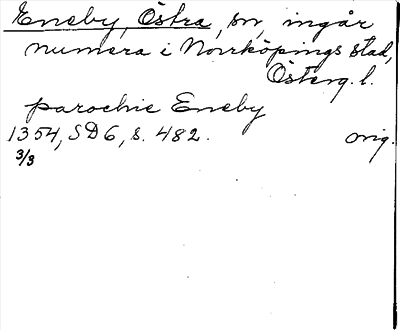 Eneby, Östra, sn, ingår
numera i Norrköpings stad,
Österg. l.
parochie Eneby
1354, SD6, s. 482. orig.
3/3